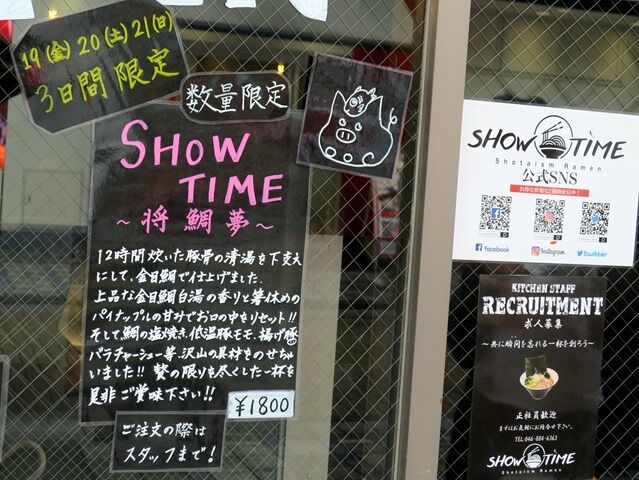 19(金)20(土)21(日)
3日間限定
数量限定
SHOW
TIME
～将鯛夢～
12時間炊いた豚骨の清湯を下支え
にして、金目鯛で仕上げました。
上品な金目鯛白湯の香りと箸休めの
パイナップルの甘みでお口の中をリセット!!
そして、鯛の塩焼き、低温豚モモ、揚げ豚
バラチャーシュー等、沢山の具材をのせちゃ
いました!! 贅の限りを尽くした一杯を
是非ご賞味下さい!!
¥1800
ご注文の際は
スタッフまで!
SHOW TIME
Shotaism Ramen
公式SNS
お得な情報など随時配信中!
facebook
Instagram
twitter
KITCHEN STAFF
RECRUITMENT
求人募集
～共に瞬間を忘れる一杯を創ろう～
正社員歓迎
まずはお気軽にお問合せ下さい。
TEL.046-884-6363
SHOW TIME